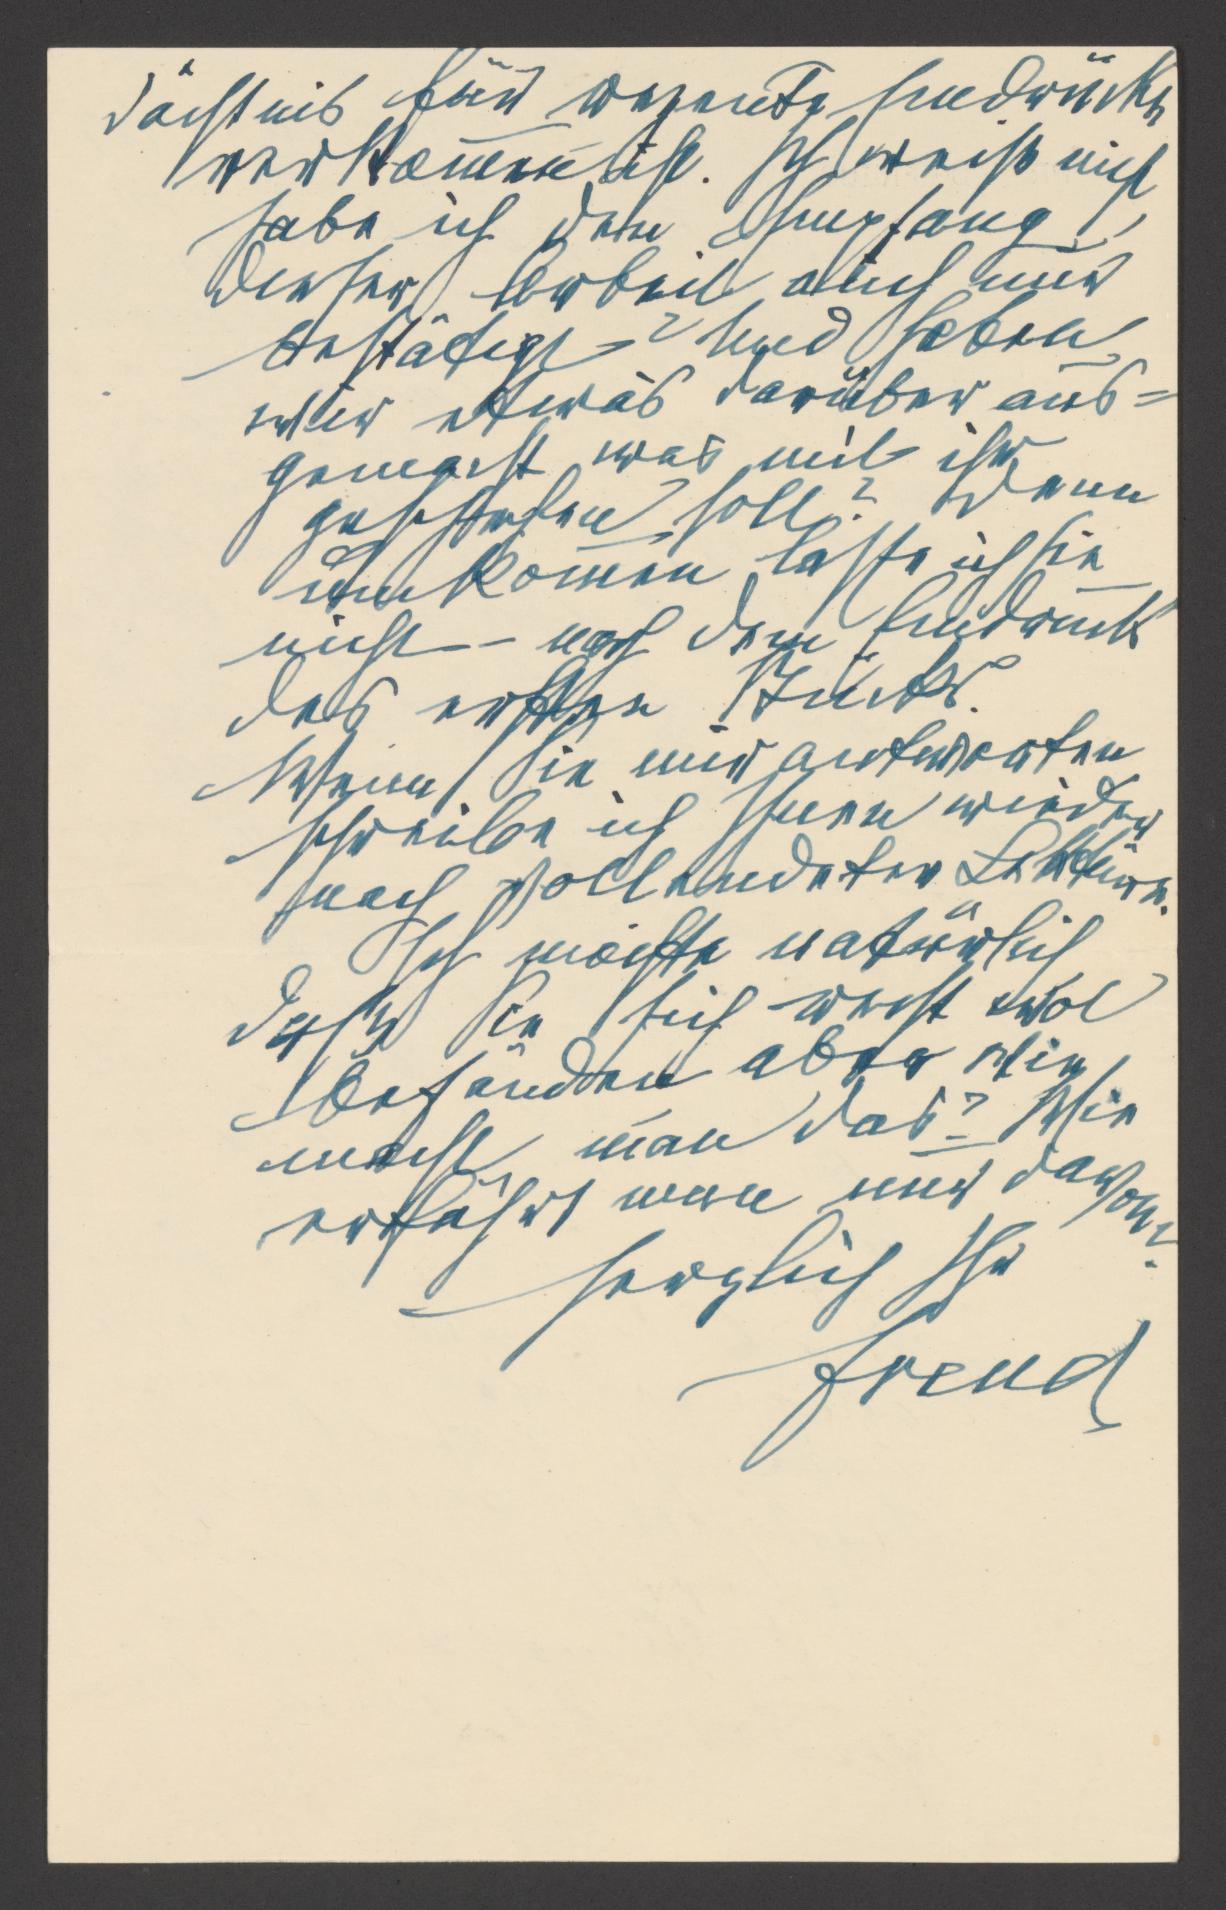 dächtnis für rezente Eindrücke
verkom̅en ist. Ich weiß nicht
habe ich den Empfang
dieser Arbeit auch nur
bestätigt? Und haben
wir etwas darüber aus-
gemacht was mit ihr
geschehen soll? Denn
umkom̅en lasse ich sie
nicht – nach dem Eindruck
des ersten Stücks.
Wenn Sie mir antworten
schreibe ich Ihnen wieder
nach vollendeter Lektüre.
Ich möchte natürlich
daß Sie sich recht wol
befänden aber wie
macht man das? Wie
erfährt man nur davon?
Herzlich Ihr
Freud